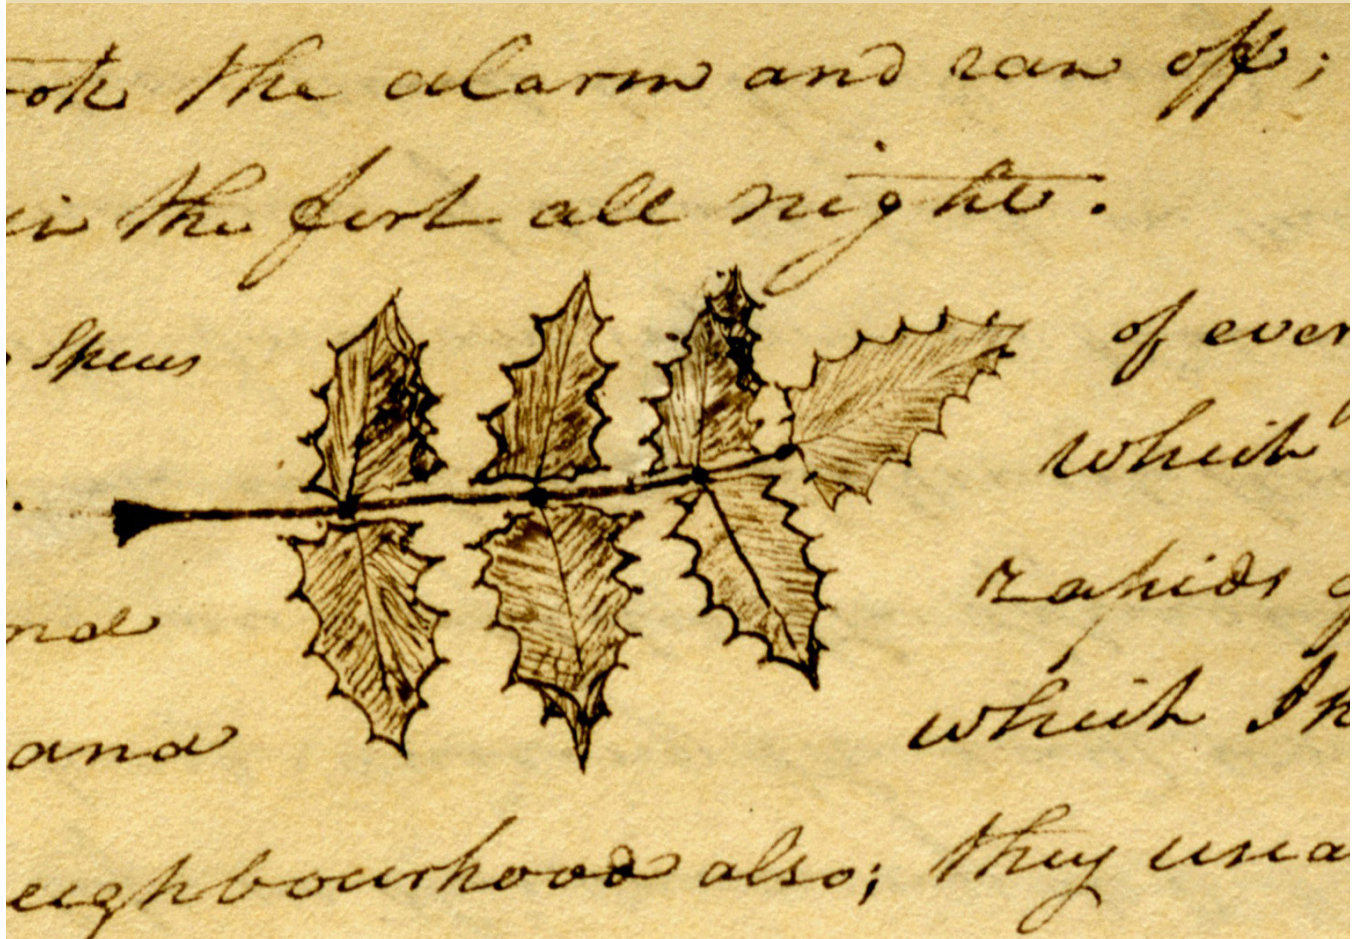 the alarm and ran off;
in the fort all night.
of ever
which
rapids
and
which I
eighbourhood also; they usua